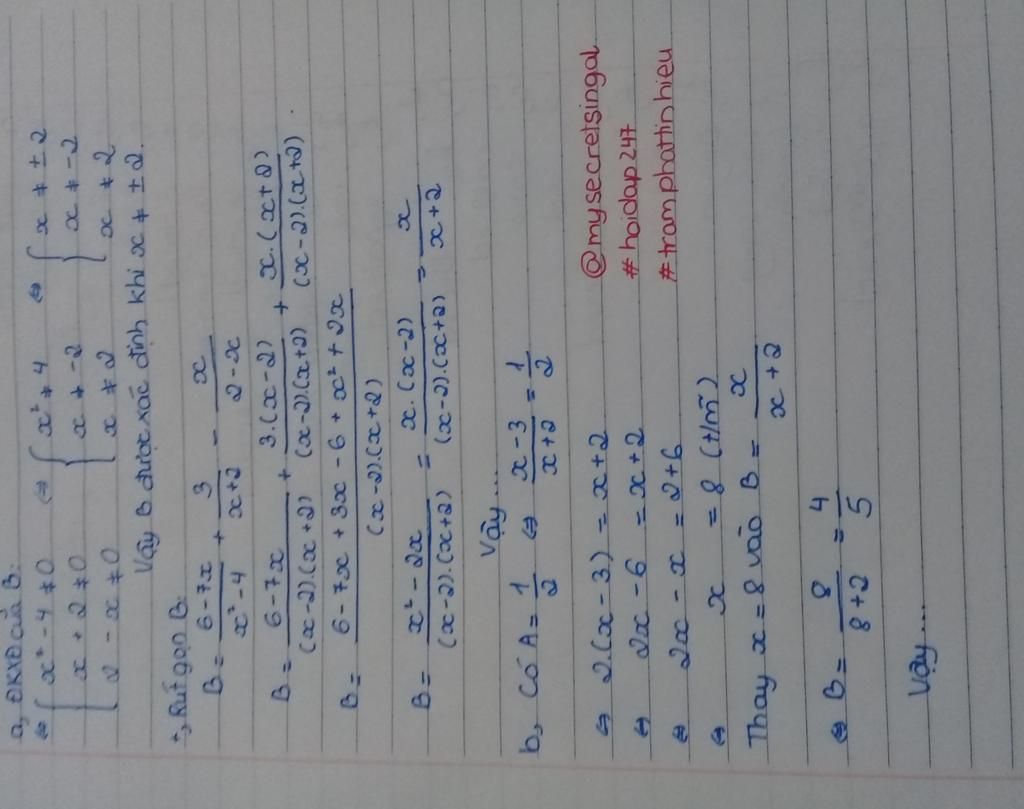 a, ĐKXĐ của B:
⇔ { x² - 4 ≠ 0 ⇔ { x² ≠ 4 ⇔ { x ≠ ± 2
x + 2 ≠ 0 x ≠ -2 x ≠ -2
2 - x ≠ 0 x ≠ 2 x ≠ 2
Vậy B được xác định khi x ≠ ± 2.
+, Rút gọn B:
B = (6 - 7x)/(x² - 4) + 3/(x + 2) - x/(2 - x)
B = (6 - 7x)/((x - 2).(x + 2)) + (3.(x - 2))/((x - 2).(x + 2)) + (x.(x + 2))/((x - 2).(x + 2)).
B = (6 - 7x + 3x - 6 + x² + 2x)/((x - 2).(x + 2))
B = (x² - 2x)/((x - 2).(x + 2)) = (x.(x - 2))/((x - 2).(x + 2)) = x/(x + 2)
Vậy...
b, Có A = 1/2 ⇔ (x - 3)/(x + 2) = 1/2
⇔ 2.(x - 3) = x + 2
⇔ 2x - 6 = x + 2
⇔ 2x - x = 2 + 6
⇔ x = 8 (t/m)
Thay x = 8 vào B = x/(x + 2)
⇔ B = 8/(8 + 2) = 4/5
Vậy...
@mysecretsingal
#hoidap247
#tramphattinhieu